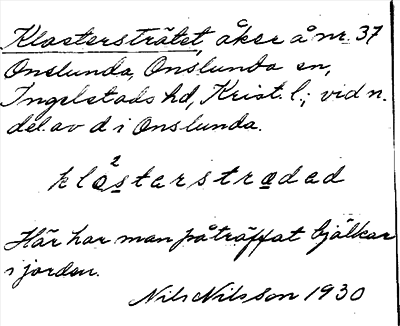 Klostersträtet, åker å nr. 37
Onslunda, Onslunda sn,
Ingelstads hd, Krist. l.; vid n.
del. av d i Onslunda.
klo²starstrødad
Här har man påträffat bjälkar
i jorden.
Nils Nilsson 1930